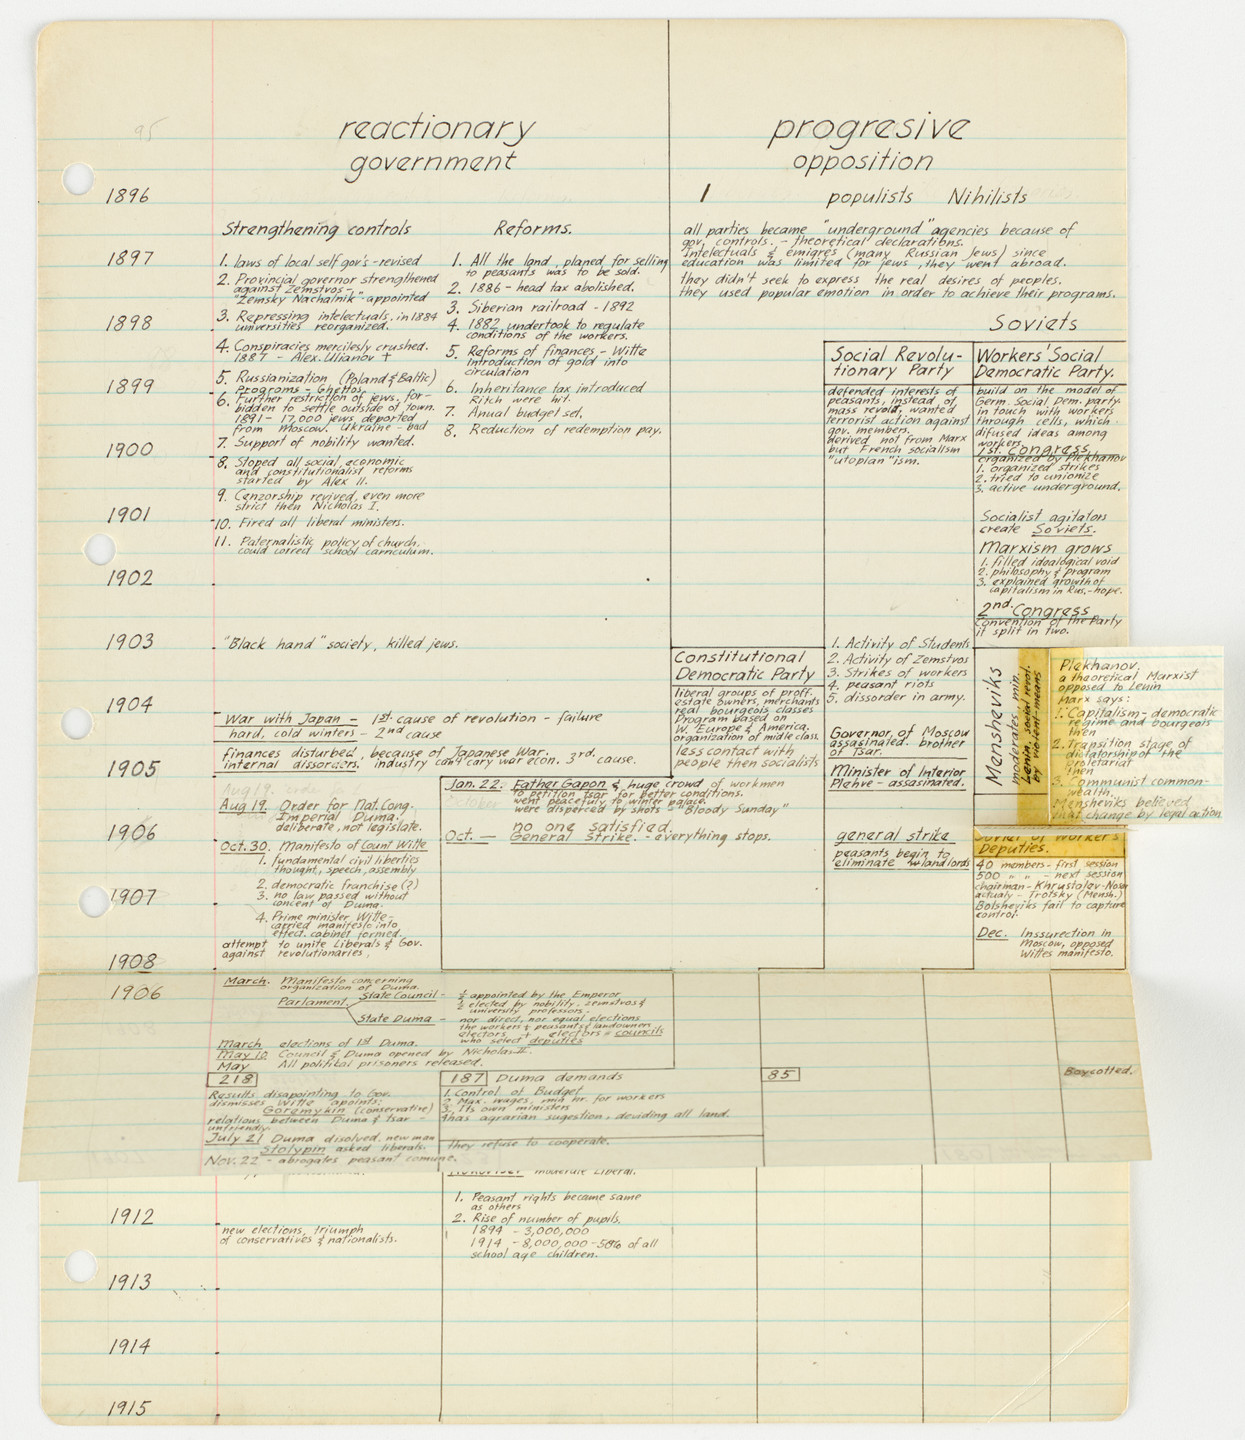 95
reactionary
government
progresive
opposition
1896
1
populists Nihilists
Strengthening controls
Reforms.
all parties became "underground" agencies because of
gov. controls. - theoretical declarations.
Intelectuals & emigres (many Russian Jews) since
education was limited for jews, they went abroad.
they didn't seek to express the real desires of peoples.
they used popular emotion in order to achieve their programs.
1897
1. laws of local self gov's - revised
2. Provincial governor strengthened
against Zemstvos -
"Zemsky Nachalnik" appointed
1898
3. Repressing intelectuals, in 1884
universities reorganized.
4. Conspiracies mercilesly crushed.
1887 - Alex. Ulianov +
1899
5. Russianization (Poland & Baltic)
Programs - Ghettos
6. Further restriction of jews. for-
bidden to settle outside of town.
1891 - 17,000 jews deported
from Moscow. Ukraine - bad
1900
7. Support of nobility wanted.
8. Stoped all social, economic
and constitutionalist reforms
started by Alex II.
9. Cenzorship revived, even more
strict then Nicholas I.
1901
10. Fired all liberal ministers.
11. Paternalistic policy of church.
could correct school curriculum.
1902
1. All the land, planed for selling
to peasants was to be sold.
2. 1886 - head tax abolished.
3. Siberian railroad - 1892
4. 1882 undertook to regulate
conditions of the workers.
5. Reforms of finances - Witte
Introduction of gold into
circulation
6. Inheritance tax introduced
Ritch were hit.
7. Anual budget set.
8. Reduction of redemption pay.
Soviets
Social Revolu-
tionary Party
defended interests of
peasants, instead of
mass revolt, wanted
terrorist action against
gov. members.
derived not from Marx
but French socialism
"utopian"ism.
Workers' Social
Democratic Party.
build on the model of
Germ. Social Dem. party.
in touch with workers
through cells, which
difused ideas among
workers.
1st. Congress
organized by Plekhanov
1. organized strikes
2. tried to unionize
3. active underground.
Socialist agitators
create Soviets.
Marxism grows
1. filled idealogical void
2. philosophy & program
3. explained growth of
capitalism in Rus. - hope.
2nd. Congress
convention of the Party
it split in two.
1903
"Black hand" society, killed jews.
Constitutional
Democratic Party
liberal groups of proff.
estate owners, merchants
real bourgeois classes
Program based on
W. Europe & America.
organization of middle class.
less contact with
people then socialists
1. Activity of Students
2. Activity of Zemstvos
3. Strikes of workers
4. peasant riots
5. dissorder in army.
Governor of Moscow
assasinated. brother
of Tsar.
Minister of Interior
Plehve - assasinated.
Mensheviks
moderates, min.
Lenin, social revol.
by violent means
Plekhanov,
a theoretical Marxist
opposed to Lenin
Marx says:
1. Capitalism - democratic
regime and bourgeois
then
2. Transition stage of
dictatorship of the
proletariat
then
3. Communist common-
wealth.
Mensheviks believed
that change by legal action
1904
War with Japan - 1st cause of revolution - failure
hard, cold winters - 2nd cause
finances disturbed, because of Japanese War.
internal dissorders, industry can't cary war econ. 3rd. cause.
1905
Aug 19.
Aug 19. Order for Nat. Cong.
Imperial Duma.
deliberate, not legislate.
1906
Oct. 30. Manifesto of Count Witte
1. fundamental civil liberties
thought, speech, assembly
2. democratic franchise (?)
3. no law passed without
concent of Duma.
4. Prime minister Witte -
carried manifesto into
effect. cabinet formed.
attempt to unite Liberals & Gov.
against revolutionaries.
1907
1908
Jan. 22: Father Gapon & huge crowd of workmen
to petition Tsar for better conditions.
went peacefuly to winter palace.
were disperced by shots - "Bloody Sunday"
October
no one satisfied.
Oct. - General Strike. - everything stops.
general strike
peasants begin to
eliminate landlords
Soviet of Workers'
Deputies.
40 members - first session
500 " " - next session
chairman - Khrustalev-Nosar
actualy - Trotsky (Mensh.)
Bolsheviks fail to capture
control.
Dec. Inssurection in
Moscow, opposed
Wittes manifesto.
1906
March. Manifesto concerning
organization of Duma.
Parlament
State Council - ½ appointed by the Emperor
½ elected by nobility, zemstvos &
university professors.
State Duma - nor direct, nor equal elections
the workers & peasants & landowners
electors + electors = councils
who select deputies
March elections of 1st Duma.
May 10 Council & Duma opened by Nicholas II.
May All political prisoners released.
218
Results disapointing to Gov.
dismisses Witte apoints:
Goremykin (conservative)
relations between Duma & Tsar -
unfriendly.
July 21 Duma disolved. new man
Stolypin asked liberals.
Nov. 22 - abrogates peasant comune.
187 Duma demands
1. Control of Budget
2. Max. wages, min hr. for workers
3. Its own ministers
4 has agrarian sugestion, deviding all land.
they refuse to cooperate.
85
Boycotted.
moderate Liberal.
1. Peasant rights became same
as others
2. Rise of number of pupils.
1894 - 3,000,000
1914 - 8,000,000 - 50% of all
school age children.
1912
new elections, triumph
of conservatives & nationalists.
1913
1914
1915